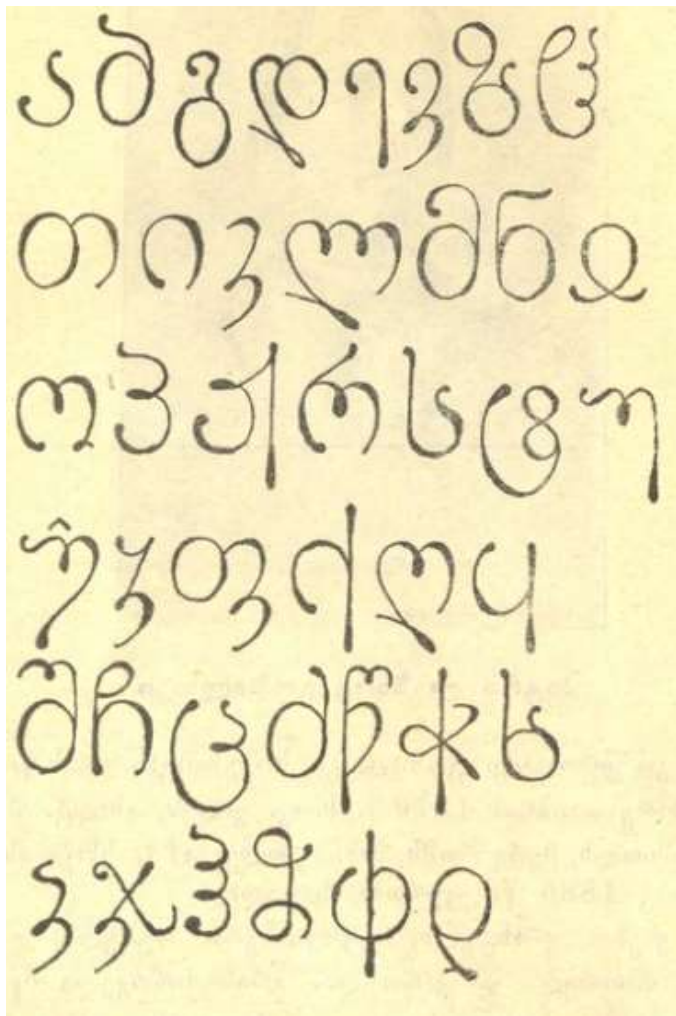 ა ბ გ დ ე ვ ზ ჱ
თ ი კ ლ მ ნ ჲ
ო პ ჟ რ ს ტ უ
უ̂ ჳ ფ ქ ღ ყ
შ ჩ ც ძ წ ჭ ხ
ჴ ჯ ჰ ჵ ჶ ჷ